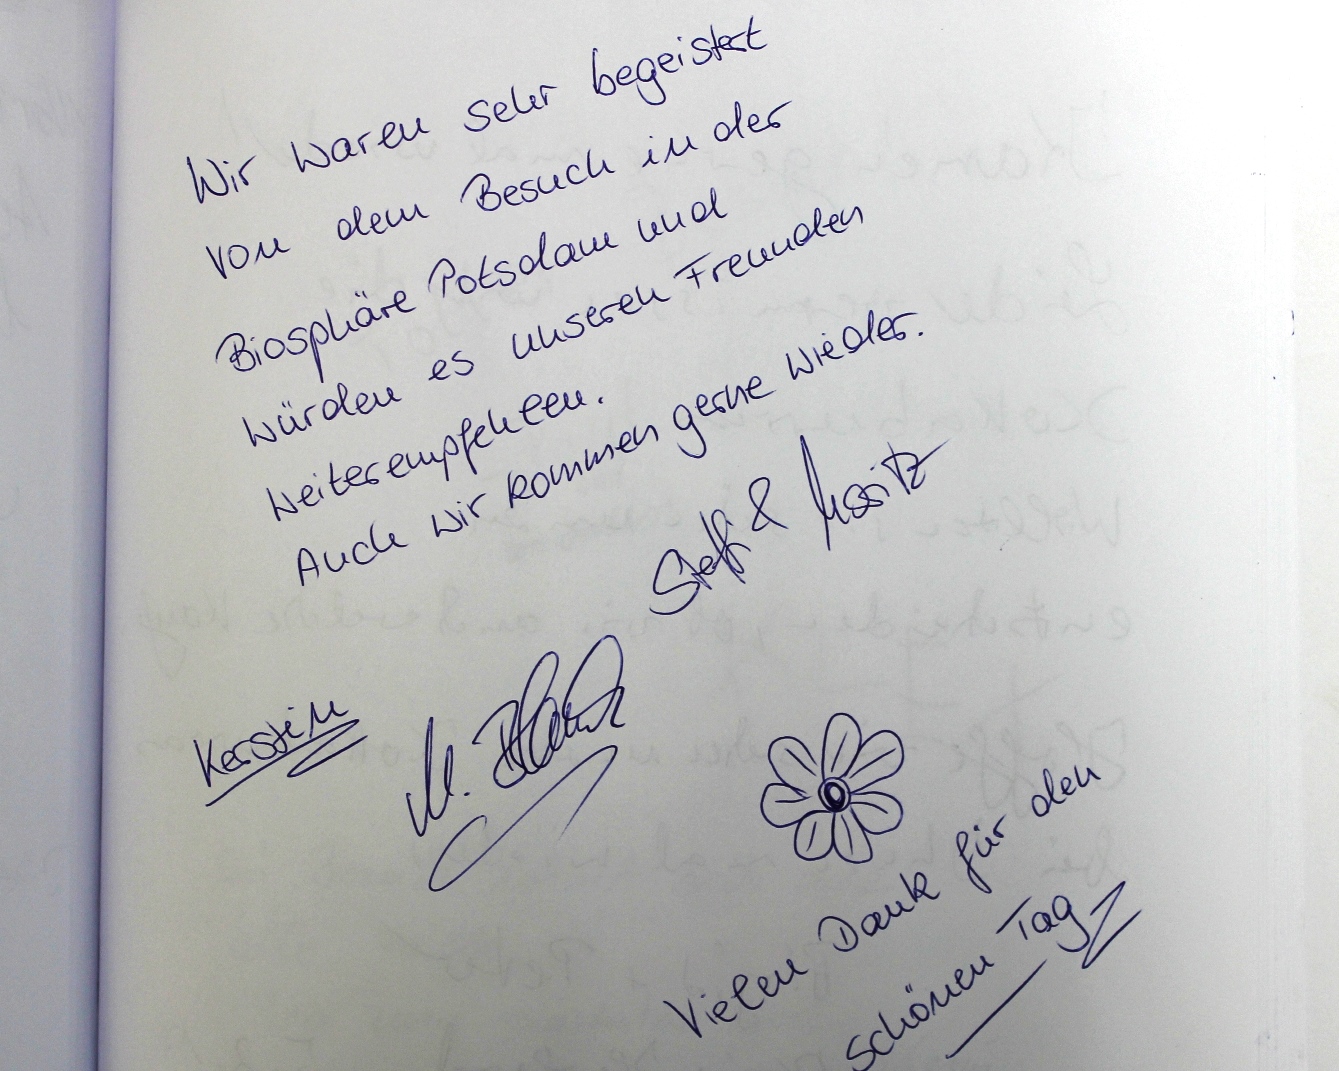 Wir waren sehr begeistert
von dem Besuch in der
Biosphäre Potsdam und
würden es unseren Freunden
weiterempfehlen.
Auch wir kommen gerne wieder.
Steffi & Moritz
Kerstin
M.
Vielen Dank für den
schönen Tag